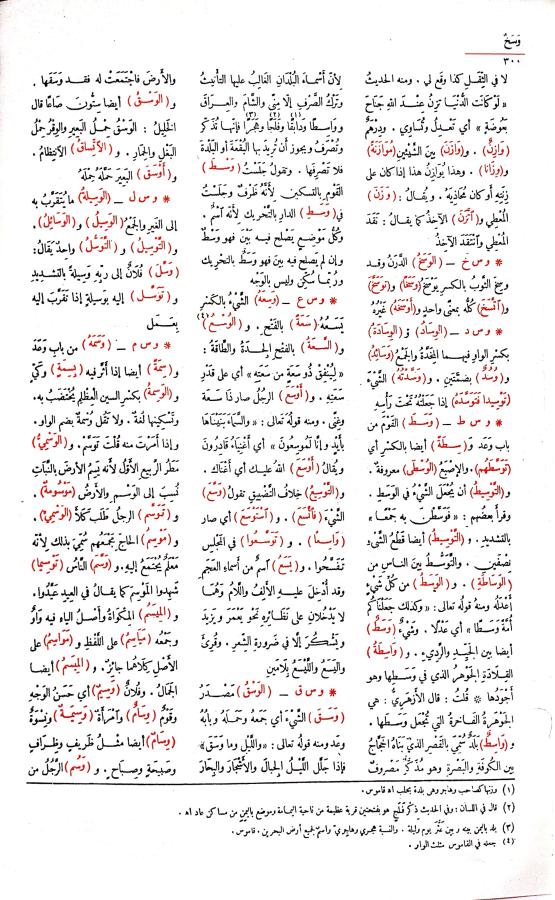 وَسَخٌ
٣٠٠
لا في الثِّقَل كذا وَقَع لي . ومنه الحديثُ
« لو كانت الدُّنيا تَزِن عند الله جَناحَ
بَعُوضَةٍ » أي تَعْدِل وتُساوِي . ودِرْهَمٌ
(وَازِنٌ) . و (وَازَنَ) بين الشَّيئين (مُوَازَنَةً)
و (وِزَانًا) . وهذا يُوازِنُ هذا إذا كان على
زِنَتِه أو كان مُحاذِيَه . ويُقالُ : (وَزَنَ)
المُعْطِي و (اتَّزَنَ) الآخِذُ كما يقالُ : نَقَدَ
المُعْطِي وانْتَقَدَ الآخِذُ
* و س خ – (الوَسَخُ) الدَّرَنُ وقد
وَسِخَ الثَّوبُ بالكسرِ يَوْسَخُ (وَسَخًا) و (تَوَسَّخَ)
و (اتَّسَخَ) كُلُّه بمعنًى واحدٍ و (أَوْسَخَهُ) غَيْرُهُ
* و س د – (الوِسَادُ) و (الوِسَادَةُ)
بكسر الواو فيهما المِخَدَّةُ والجَمْعُ (وَسَائِدُ)
و (وُسُدٌ) بضمَّتين . و (وَسَّدْتُهُ) الشَّيءَ
(تَوْسِيدًا فَتَوَسَّدَهُ) إذا جعلتَهُ تحتَ رأسِهِ
* و س ط – (وَسَطَ) القومَ من
باب وَعَد و (سِطَةً) أيضا بالكسرِ أي
(تَوَسَّطَهُم) . والإصبعُ (الوُسْطَى) معروفةٌ .
و (التَّوسيطُ) أن يُجعَلَ الشَّيءُ في الوَسَط .
وقرأ بعضُهم : « فَوَسَّطْنَ به جَمْعًا »
بالتشديد . و (التَّوسيطُ) أيضا قطعُ الشَّيءِ
نِصْفَين . والتَّوسُّطُ بين الناس من
(الوَسَاطَةِ) . و (الوَسَطُ) من كُلِّ شيءٍ
أَعْدَلُهُ ومنه قولُه تعالى : « وكذلك جعلناكم
أُمَّةً وَسَطًا » أي عَدْلًا . وشَيءٌ (وَسَطٌ)
أيضا بين الجَيِّد والرَّدِيءِ . و (وَاسِطَةُ)
القِلادَةِ الجَوْهَرُ الذي في وَسَطِها وهو
أجْوَدُها * قُلتُ : قال الأزهَرِيّ : هي
الجَوْهَرةُ الفاخرةُ التي تُجْعَل وَسَطَها .
و (وَاسِطٌ) بَلَدٌ سُمِّيَ بالقَصْرِ الذي بناهُ الحَجَّاجُ
بين الكُوفةِ والبَصْرةِ وهو مُذَكَّرٌ مصروفٌ
لأنَّ أسماءَ البُلدان الغالبُ عليها التأنيثُ
وتَرْكُ الصَّرْفِ إلّا مِنًى والشَّامَ والعِراقَ
وواسِطًا ودابِقًا وفَلْجًا وهَجَرًا فإنَّها تُذَكَّر
وتُصرَف ويجوز أن تُريدَ بها البُقْعةَ أو البَلْدةَ
فلا تَصْرِفَها . وتقولُ جَلَستُ (وَسْطَ)
القومِ بالتسكين لأنَّهُ ظَرْفٌ وجَلَستُ
في (وَسَطِ) الدارِ بالتَّحْرِيك لأنَّهُ اسمٌ .
وكُلُّ مَوْضِعٍ يَصْلُح فيه بَيْن فهو وَسْطٌ
وإن لم يَصْلُح فيه بَيْن فهو وَسَطٌ بالتحريك
ورُبَّما سُكِّن وليس بالوَجْهِ
* و س ع – (وَسِعَهُ) الشَّيءُ بالكسرِ
يَسَعُهُ (سَعَةً) بالفتح . و (الوُسْعُ)⁽⁴⁾
و (السَّعَةُ) بالفتح الجِدَةُ والطَّاقَةُ :
« لِيُنْفِقْ ذُو سَعَةٍ من سَعَتِهِ » أي على قَدْرِ
سَعَتِهِ . و (أَوْسَعَ) الرجُلُ صار ذا سَعَة
وغِنًى . ومنه قولُه تعالى : « والسَّماءَ بَنَيْناها
بأَيْدٍ وإنَّا لَمُوسِعُون » أي أغنياءُ قادِرُون
ويُقالُ (أَوْسَعَ) اللهُ عليك أي أغْناك .
و (التَّوْسِيعُ) خِلافُ التَّضْيِيق تقولُ (وَسَّعَ)
الشَّيءَ (فَاتَّسَعَ) و (اسْتَوْسَعَ) أي صار
(واسِعًا) . و (تَوَسَّعُوا) في المجلِسِ
تَفَسَّحُوا . و (يَسَعُ) اسمٌ من أسماءِ العَجَمِ
وقد أُدْخِلَ عليه الألِفُ واللَّامُ وهُما
لا يَدْخُلان على نَظائِرِه نحو يَعْمَرَ ويَزِيدَ
ويَشْكُرَ إلَّا في ضَرورةِ الشِّعرِ . وقُرِئَ
واليَسَعَ واللَّيْسَعَ بِلامَين
* و س ق – (الوَسْقُ) مَصْدَرُ
(وَسَقَ) الشَّيءَ أي جَمَعَهُ وحَمَلَهُ وبابُهُ
وَعَد ومنه قولُه تعالى : « واللَّيلِ وما وَسَقَ »
فإذا جَلَّلَ اللَّيْلُ الجِبالَ والأشْجَارَ والبِحَارَ
والأرضَ فاجْتَمَعَتْ له فقد وَسَقَها .
و (الوَسْقُ) أيضا سِتُّون صَاعًا قال
الخَلِيلُ : الوَسْقُ حِمْلُ البَعِيرِ والوِقْرُ حِمْلُ
البَغْلِ والحِمارِ . و (الاتِّساقُ) الانتِظامُ .
و (أَوْسَقَ) البَعيرَ حَمَّلَهُ حِمْلَهُ
* و س ل – (الوَسِيلةُ) ما يُتَقَرَّبُ به
إلى الغَيرِ والجَمْعُ (الوَسِيلُ) و (الوَسَائِلُ) .
و (التَّوْسِيلُ) و (التَّوَسُّلُ) واحدٌ يُقالُ :
(وَسَّلَ) فُلانٌ إلى رَبِّه وَسِيلَةً بالتَّشديدِ
و (تَوَسَّلَ) إليه بوَسِيلَةٍ إذا تَقَرَّبَ إليه
بعَمَلٍ
* و س م – (وَسَمَهُ) من باب وَعَدَ
و (سِمَةً) أيضا إذا أثَّرَ فيه (بِسِمَةٍ) وكَيٍّ
و (الوَسِمةُ) بكسر السينِ العِظْلِمُ يُخْتَضَبُ به .
وتَسْكِينُها لُغَةٌ . ولا تَقُل وُسْمَةٌ بضم الواو .
و إذا أمَرْتَ منه قُلتَ تَوَسَّمْ . و (الوَسْمِيُّ)
مَطَرُ الرَّبيعِ الأوَّلُ لأنَّه يَسِمُ الأرضَ بالنَّبات
نُسِبَ إلى الوَسْمِ والأرضُ (مَوْسُومَةٌ) .
و (تَوَسَّمَ) الرجُلُ طَلَبَ كَلَأَ (الوَسْمِيِّ) .
و (مَوْسِمُ) الحاجِّ مَجْمَعُهم سُمِّيَ بذلك لأنَّه
مَعْلَمٌ يُجْتَمَعُ إليه . و (وَسَّمَ) النَّاسُ (تَوْسِيمًا)
شَهِدُوا المَوْسِمَ كما يقالُ في العِيد عَيَّدُوا .
و (المِيسَمُ) المِكْواةُ وأصلُ الياءِ فيه واوٌ
و جمعُه (مَيَاسِمُ) على اللَّفْظِ و (مَوَاسِمُ) على
الأصلِ كِلاهُما جائزٌ . و (المِيسَمُ) أيضا
الجَمَالُ . وفُلانٌ (وَسِيمٌ) أي حَسَنُ الوَجْهِ
وقَومٌ (وِسَامٌ) وامرأةٌ (وَسِيمَةٌ) ونِسْوَةٌ
(وِسَامٌ) أيضا مثلُ ظَريفٍ وظِرَافٍ
وصَبِيحةٍ وصِباحٍ . و (وَسُمَ) الرَّجُلُ من
(١) وزنها كصاحب وهاجر وهي بلدة بحلب اه قاموس .
(٢) قال في اللسان : وفي الحديث ذكر فلج هو بفتحتين قرية عظيمة من ناحية اليمامة وموضع باليمن من مساكن عاد اه .
(٣) بلد باليمن بينه وبين عثَّر يوم وليلة . والنسبة هجري وهاجريّ واسم لجميع أرض البحرين . قاموس .
(٤) جعله في القاموس مثلث الواو .